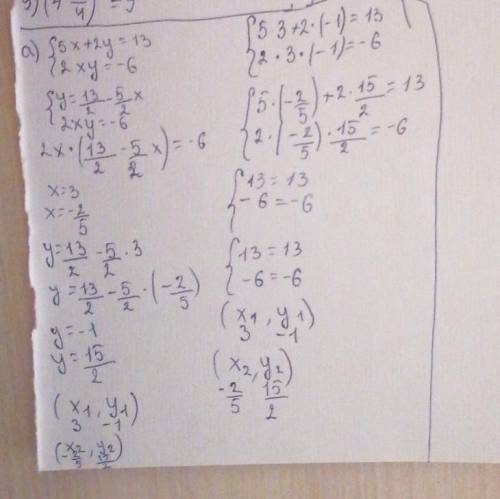 а) {5x+2y=13
{2xy=-6
{y=13/2-5/2x
{2xy=-6
2x·(13/2-5/2x)=-6
x=3
x=-2/5
y=13/2-5/2·3
y=13/2-5/2·(-2/5)
y=-1
y=15/2
(x1, y1)
3 -1
(x2, y2)
-2/5 15/2
{5·3+2·(-1)=13
{2·3·(-1)=-6
{5·(-2/5)+2·15/2=13
{2·(-2/5)·15/2=-6
{13=13
{-6=-6
{13=13
{-6=-6
(x1, y1)
3 -1
(x2, y2)
-2/5 15/2